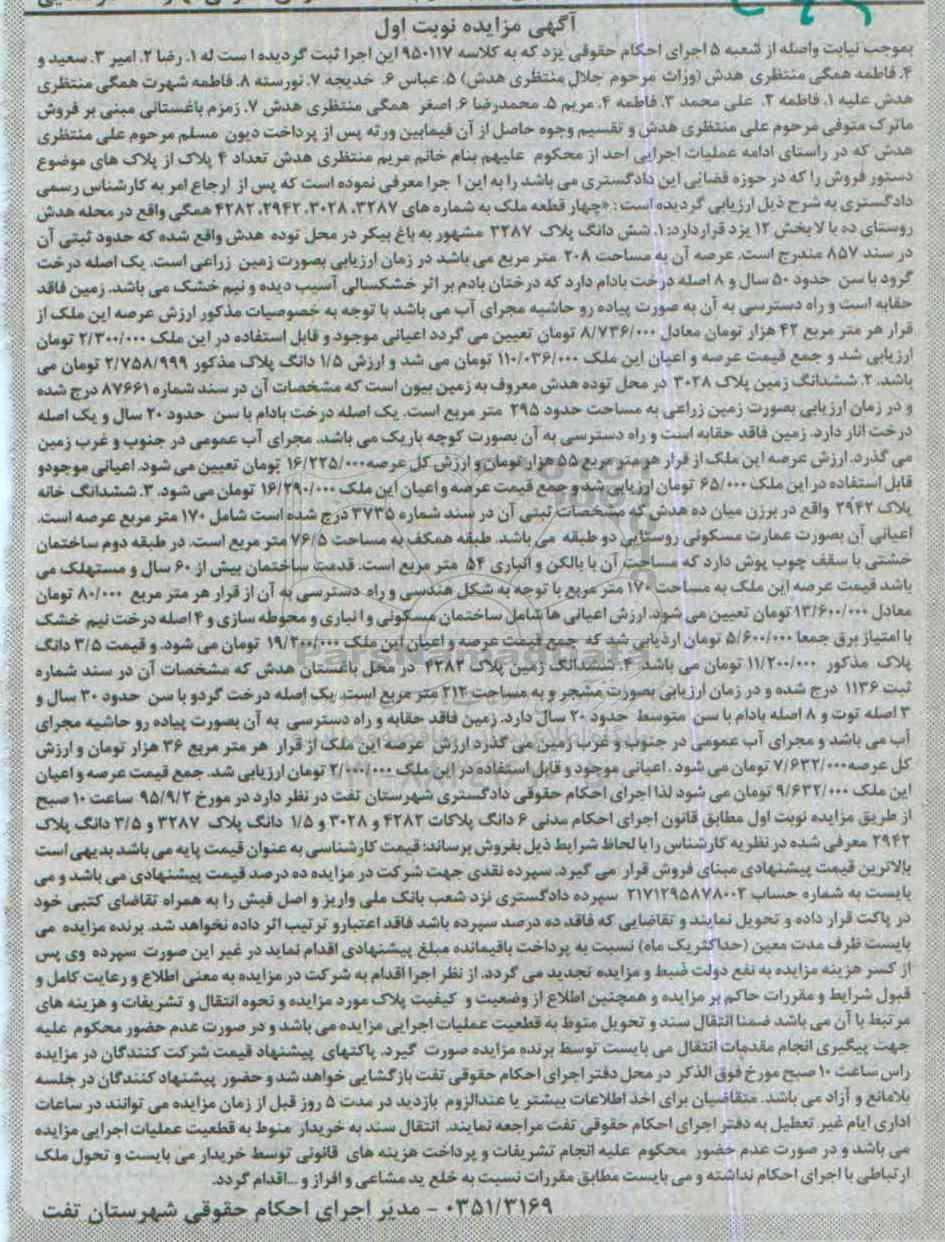 آگهی مزایده نوبت اول
بموجب نیابت واصله از شعبه ۵ اجرای احکام حقوقی یزد که به کلاسه ۹۵۰۱۱۷ این اجرا ثبت گردیده است له ۱. رضا ۲. امیر ۳. سعید و
۴. فاطمه همگی منتظری هدش (وراث مرحوم جلال منتظری هدش) ۵. عباس ۶. خدیجه ۷. نورسته ۸. فاطمه شهرت همگی منتظری
هدش علیه ۱. فاطمه ۲. علی محمد ۳. فاطمه ۴. مریم ۵. محمدرضا ۶. اصغر همگی منتظری هدش ۷. زمزم باغستانی مبنی بر فروش
ماترک متوفی مرحوم علی منتظری هدش و تقسیم وجوه حاصل از آن فیمابین ورثه پس از پرداخت دیون مسلم مرحوم علی منتظری
هدش که در راستای ادامه عملیات اجرایی احد از محکوم علیهم بنام خانم مریم منتظری هدش تعداد ۴ پلاک از پلاک های موضوع
دستور فروش را که در حوزه قضایی این دادگستری می باشد را به این ا جرا معرفی نموده است که پس از ارجاع امر به کارشناس رسمی
دادگستری به شرح ذیل ارزیابی گردیده است : «چهار قطعه ملک به شماره های ۳۲۸۷، ۳۰۲۸، ۲۹۴۲، ۴۲۸۲ همگی واقع در محله هدش
روستای ده بالا بخش ۱۲ یزد قرار دارد: ۱. شش دانگ پلاک ۳۲۸۷ مشهور به باغ بیکر در محل توده هدش واقع شده که حدود ثبتی آن
در سند ۸۵۷ مندرج است. عرصه آن به مساحت ۲۰۸ متر مربع می باشد در زمان ارزیابی بصورت زمین زراعی است. یک اصله درخت
گردو با سن حدود ۵۰ سال و ۸ اصله درخت بادام دارد که درختان بادم بر اثر خشکسالی آسیب دیده و نیم خشک می باشد. زمین فاقد
حقابه است و راه دسترسی به آن به صورت پیاده رو حاشیه مجرای آب می باشد با توجه به خصوصیات مذکور ارزش عرصه این ملک از
قرار هر متر مربع ۴۲ هزار تومان معادل ۸/۷۳۶/۰۰۰ تومان تعیین می گردد اعیانی موجود و قابل استفاده در این ملک ۲/۳۰۰/۰۰۰ تومان
ارزیابی شد و جمع قیمت عرصه و اعیان این ملک ۱۱۰/۰۳۶/۰۰۰ تومان می شد و ارزش ۱/۵ دانگ پلاک مذکور ۲/۷۵۸/۹۹۹ تومان می
باشد. ۲. ششدانگ زمین پلاک ۳۰۲۸ در محل توده هدش معروف به زمین بیون است که مشخصات آن در سند شماره ۸۷۶۶۱ درج شده
و در زمان ارزیابی بصورت زمین زراعی به مساحت حدود ۲۹۵ متر مربع است. یک اصله درخت بادام با سن حدود ۲۰ سال و یک اصله
درخت انار دارد. زمین فاقد حقابه است و راه دسترسی به آن بصورت کوچه باریک می باشد. مجرای آب عمومی در جنوب و غرب زمین
می گذرد. ارزش عرصه این ملک از قرار هر متر مربع ۵۵ هزار تومان و ارزش کل عرصه ۱۶/۲۲۵/۰۰۰ تومان تعیین می شود. اعیانی موجودو
قابل استفاده در این ملک ۶۵/۰۰۰ تومان ارزیابی شد و جمع قیمت عرصه و اعیان این ملک ۱۶/۲۹۰/۰۰۰ تومان می شود. ۳. ششدانگ خانه
پلاک ۲۹۴۲ واقع در برزن میان ده هدش که مشخصات ثبتی آن در سند شماره ۳۷۳۵ درج شده است شامل ۱۷۰ متر مربع عرصه است.
اعیانی آن بصورت عمارت مسکونی روستایی دو طبقه می باشد. طبقه همکف به مساحت ۷۶/۵ متر مربع است. در طبقه دوم ساختمان
خشتی با سقف چوب پوش دارد که مساحت آن با بالکن و انباری ۵۴ متر مربع است. قدمت ساختمان بیش از ۶۰ سال و مستهلک می
باشد قیمت عرصه این ملک به مساحت ۱۷۰ متر مربع با توجه به شکل هندسی و راه دسترسی به آن از قرار هر متر مربع ۸۰/۰۰۰ تومان
معادل ۱۳/۶۰۰/۰۰۰ تومان تعیین می شود. ارزش اعیانی ها شامل ساختمان مسکونی و ا نباری و محوطه سازی و ۴ اصله درخت نیم خشک
با امتیاز برق جمعا ۵/۶۰۰/۰۰۰ تومان ارزیابی شد که جمع قیمت عرصه و اعیان این ملک ۱۹/۲۰۰/۰۰۰ تومان می شود. و قیمت ۳/۵ دانگ
پلاک مذکور ۱۱/۲۰۰/۰۰۰ تومان می باشد. ۴. ششدانگ زمین پلاک ۴۲۸۲ در محل باغستان هدش که مشخصات آن در سند شماره
ثبت ۱۱۳۶ درج شده و در زمان ارزیابی بصورت مشجر و به مساحت ۲۱۲ متر مربع است. یک اصله درخت گردو با سن حدود ۳۰ سال و
۳ اصله توت و ۸ اصله بادام با سن متوسط حدود ۲۰ سال دارد. زمین فاقد حقابه و راه دسترسی به آن بصورت پیاده رو حاشیه مجرای
آب می باشد و مجرای آب عمومی در جنوب و غرب زمین می گذرد ارزش عرصه این ملک از قرار هر متر مربع ۳۶ هزار تومان و ارزش
کل عرصه ۷/۶۳۲/۰۰۰ تومان می شود. اعیانی موجود و قابل استفاده در این ملک ۲/۰۰۰/۰۰۰ تومان ارزیابی شد. جمع قیمت عرصه و اعیان
این ملک ۹/۶۳۲/۰۰۰ تومان می شود لذا اجرای احکام حقوقی دادگستری شهرستان تفت در نظر دارد در مورخ ۹۵/۹/۲ ساعت ۱۰ صبح
از طریق مزایده نوبت اول مطابق قانون اجرای احکام مدنی ۶ دانگ پلاکات ۴۲۸۲ و ۳۰۲۸ و ۱/۵ دانگ پلاک ۳۲۸۷ و ۳/۵ دانگ پلاک
۲۹۴۲ معرفی شده در نظریه کارشناس را با لحاظ شرایط ذیل بفروش برساند: قیمت کارشناسی به عنوان قیمت پایه می باشد بدیهی است
بالاترین قیمت پیشنهادی مبنای فروش قرار می گیرد. سپرده نقدی جهت شرکت در مزایده ده درصد قیمت پیشنهادی می باشد و می
بایست به شماره حساب ۲۱۷۱۲۹۵۸۷۸۰۰۲ سپرده دادگستری نزد شعب بانک ملی واریز و اصل فیش را به همراه تقاضای کتبی خود
در پاکت قرار داده و تحویل نمایند و تقاضایی که فاقد ده درصد سپرده باشد فاقد اعتبار و ترتیب اثر داده نخواهد شد. برنده مزایده می
بایست ظرف مدت معین (حداکثر یک ماه) نسبت به پرداخت باقیمانده مبلغ پیشنهادی اقدام نماید در غیر این صورت سپرده وی پس
از کسر هزینه مزایده به نفع دولت ضبط و مزایده تجدید می گردد. از نظر اجرا اقدام به شرکت در مزایده به معنی اطلاع و رعایت کامل و
قبول شرایط و مقررات حاکم بر مزایده و همچنین اطلاع از وضعیت و کیفیت پلاک مورد مزایده و نحوه انتقال و تشریفات و هزینه های
مرتبط با آن می باشد ضمنا انتقال سند و تحویل منوط به قطعیت عملیات اجرایی مزایده می باشد و در صورت عدم حضور محکوم علیه
جهت پیگیری انجام مقدمات انتقال می بایست توسط برنده مزایده صورت گیرد. پاکتهای پیشنهاد قیمت شرکت کنندگان در مزایده
راس ساعت ۱۰ صبح مورخ فوق الذکر در محل دفتر اجرای احکام حقوقی تفت بازگشایی خواهد شد و حضور پیشنهاد کنندگان در جلسه
بلامانع و آزاد می باشد. متقاضیان برای اخذ اطلاعات بیشتر یا عندالزوم بازدید در مدت ۵ روز قبل از زمان مزایده می توانند در ساعات
اداری ایام غیر تعطیل به دفتر اجرای احکام حقوقی تفت مراجعه نمایند. انتقال سند به خریدار منوط به قطعیت عملیات اجرایی مزایده
می باشد و در صورت عدم حضور محکوم علیه انجام تشریفات و پرداخت هزینه های قانونی توسط خریدار می بایست و تحول ملک
ارتباطی با اجرای احکام نداشته و می بایست مطابق مقررات نسبت به خلع ید مشاعی و افراز و ...اقدام گردد.
۰۳۵۱/۳۱۶۹ - مدیر اجرای احکام حقوقی شهرستان تفت